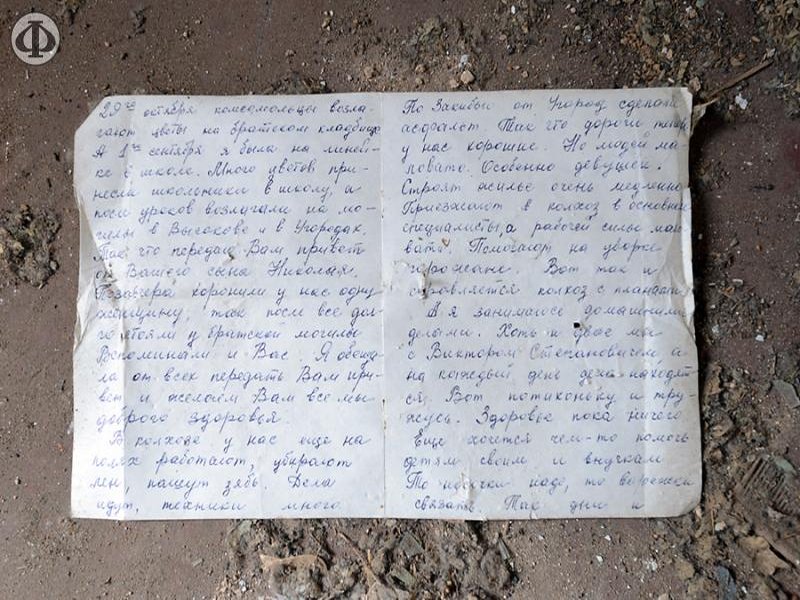 Ф
29го октября комсомольцы возла-
гают цветы на братском кладбище
А 1го сентября я была на линей-
ке в школе. Много цветов при-
несли школьники в школу, а
посл уроков возлагали на мо-
гилы в Высокове и в Угородах.
Так что передаю Вам привет
от Вашего сына Николая.
Позавчера хоронили у нас одну
женщину, так посл все дол-
го стояли у братской могилы
Вспоминали и Вас. Я обеща-
ла от всех передать Вам при-
вет и желаем Вам все мы
доброго здоровья.
В колхозе у нас еще на
полях работают, убирают
лен, пашут зябь. Дела
идут, техники много
По Закибью от Угород сделали
асфальт. Так что дороги теперь
у нас хорошие. Но людей ма-
ловато. Особенно девушек.
Строят жилье очень медленно
Приезжают в колхоз в основном
специалисты, а рабочей силы мало-
вато. Помогают на уборке
горожане. Вот так и
справляется колхоз с планами
А я занимаюсь домашними
делами. Хоть и двое мы
с Виктором Степановичем, а
на каждый день дела находят-
ся. Вот потихоньку и тру-
жусь. Здоровье пока ничего
Еще хочется чем-то помочь
детям своим и внучкам
То носочки надо, то варежки
связать. Так дни и